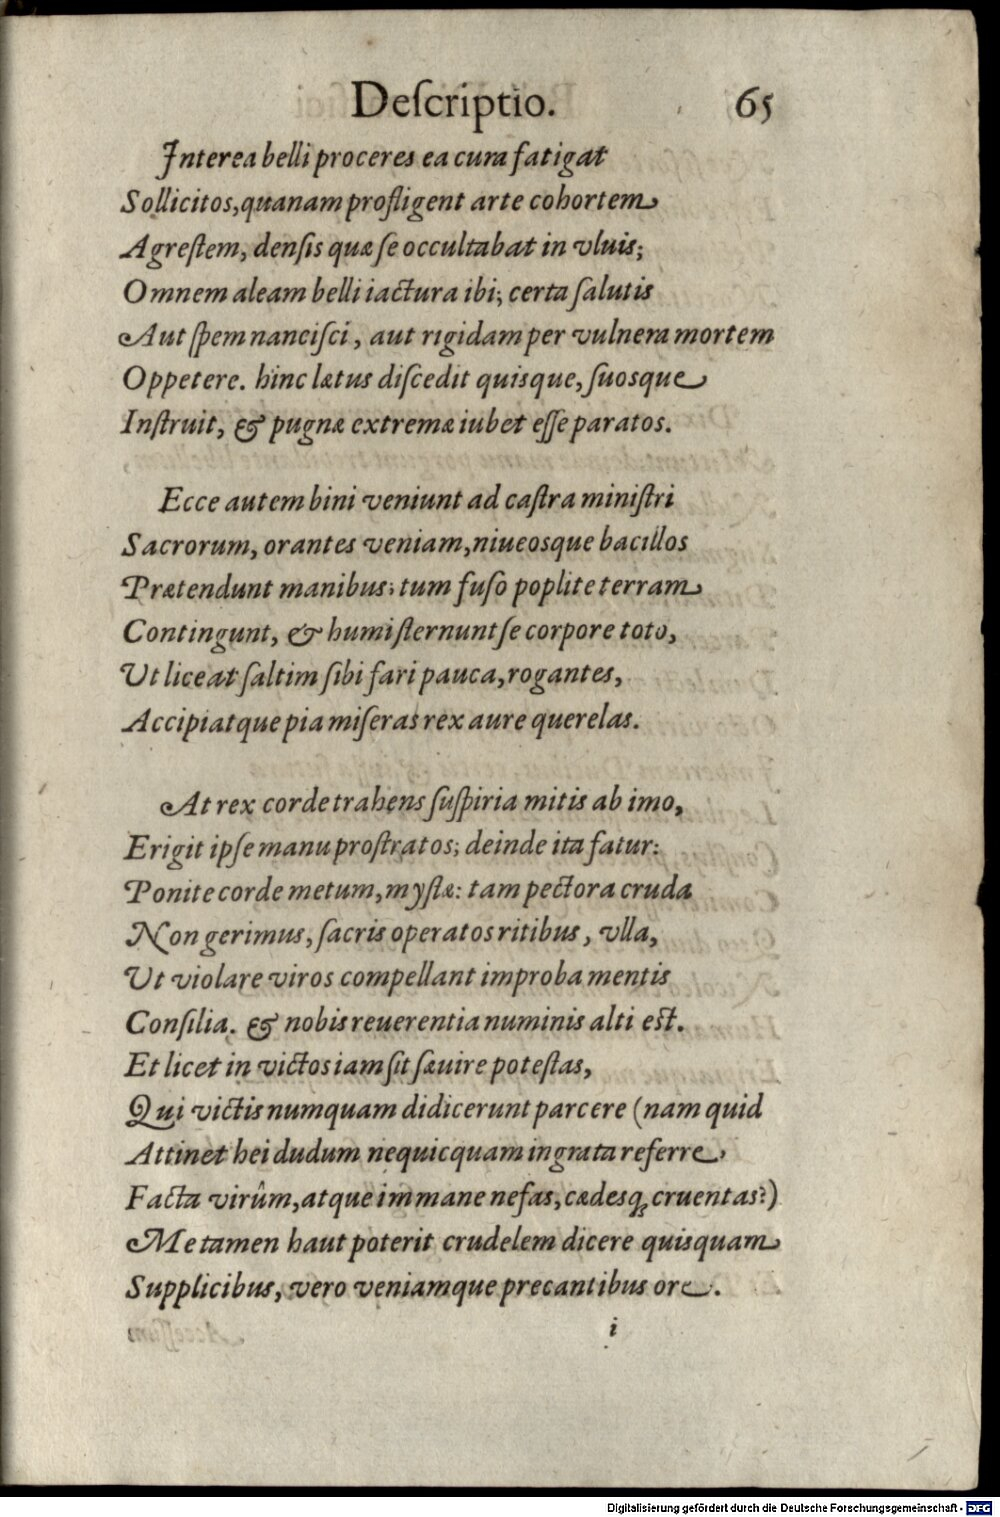 Deſcriptio. 65
Interea belli proceres ea cura fatigat
Sollicitos, quanam profligent arte cohortem
Agreſtem, denſis quæ ſe occultabat in vluis;
Omnem aleam belli iactura ibi; certa ſalutis
Aut ſpem nanciſci, aut rigidam per vulnera mortem
Oppetere. hinc lætus diſcedit quisque, ſuosque
Inſtruit, & pugnæ extremæ iubet eſſe paratos.
Ecce autem bini veniunt ad caſtra miniſtri
Sacrorum, orantes veniam, niueosque bacillos
Prætendunt manibus; tum fuſo poplite terram
Contingunt, & humi ſternunt ſe corpore toto,
Ut liceat ſaltim ſibi fari pauca, rogantes,
Accipiatque pia miſeras rex aure querelas.
At rex corde trahens ſuſpiria mitis ab imo,
Erigit ipſe manu proſtratos; deinde ita fatur:
Ponite corde metum, myſtæ: tam pectora cruda
Non gerimus, ſacris operatos ritibus, vlla,
Ut violare viros compellant improba mentis
Conſilia. & nobis reuerentia numinis alti est.
Et licet in victos iam ſit ſæuire poteſtas,
Qui victis numquam didicerunt parcere (nam quid
Attinet hei dudum nequicquam ingrata referre
Facta virûm, atque immane nefas, cædesq́; cruentas?)
Me tamen haut poterit crudelem dicere quisquam
Supplicibus, vero veniamque precantibus ore.
i
Digitalisierung gefördert durch die Deutsche Forschungsgemeinschaft - DFG